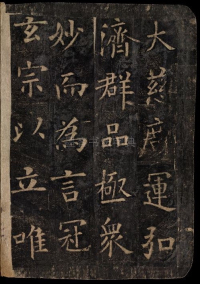 大慈廣運弘
濟群品極衆
妙而為言冠
玄宗以立唯